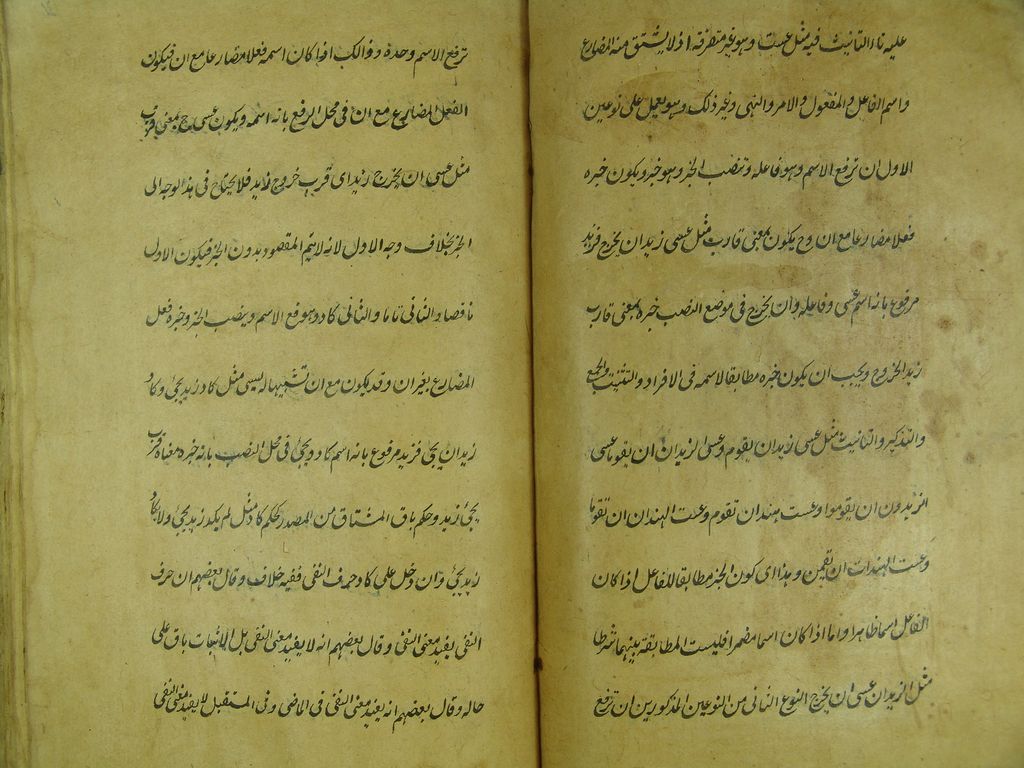 عليه تاء التانيث فيه مثل عست وهو غير متصرفة اذ لا يشتق منه المضارع
واسم الفاعل والمفعول والامر والنهى وغير ذلك وهو يعمل على نوعين
الاول ان ترفع الاسم وهو فاعله وتنصب الخبر وهو خبره ويكون خبره
فعلا مضارعا مع ان وح يكون بمعنى قارب مثل عسى زيد ان يخرج فزيد
مرفوع بانه اسم عسى وفاعله وان يخرج فى موضع النصب خبره بمعنى قارب
زيد الخروج ويجب ان يكون خبره مطابقا لاسمه فى الافراد والتثنية والجمع
والتذكير والتانيث مثل عسى زيد ان يقوم وعسى الزيدان ان يقوما وعسى
الزيدون ان يقوموا وعست هند ان تقوم وعست الهندان ان تقوما
وعست الهندات ان يقمن وهذا اى كون الخبر مطابقا للفاعل اذا كان
الفاعل اسما ظاهرا واما اذا كان اسما مضمرا فليست المطابقة بينهما شرطا
مثل الزيدان عسى ان يخرج النوع الثانى من النوعين المذكورين ان ترفع
ترفع الاسم وحده وذالك اذا كان اسمه فعلا مضارعا مع ان فيكون
الفعل المضارع مع ان فى محل الرفع بانه اسمه ويكون عسى ح بمعنى قرب
مثل عسى ان يخرج زيد اى قرب خروج زيد فلا يحتاج فى هذا الوجه الى
الخبر بخلاف وجه الاول لانه لا يتم المقصود بدون الخبر فيكون الاول
ناقصا والثانى تاما والثانى كاد وهو يرفع الاسم وينصب الخبر وخبره فعل
المضارع بغير ان وقد يكون مع ان تشبيها له بعسى مثل كاد زيد يجئ وكاد
زيد ان يجئ فزيد مرفوع بانه اسم كاد ويجئ فى محل النصب بانه خبره معناه قرب
يجئ زيد وحكم باقى المشتاق من المصدر كحكم كاد مثل لم يكد زيد يجئ ولا يكاد
زيد يجئ وان دخل على كاد حرف النفى ففيه خلاف وقال بعضهم ان حرف
النفى يفيد معنى النفى وقال بعضهم انه لا يفيد معنى النفى بل الاثبات باق على
حاله وقال بعضهم انه يفيد معنى النفى فى الماضى وفى المستقبل لا يفيد معنى النفى